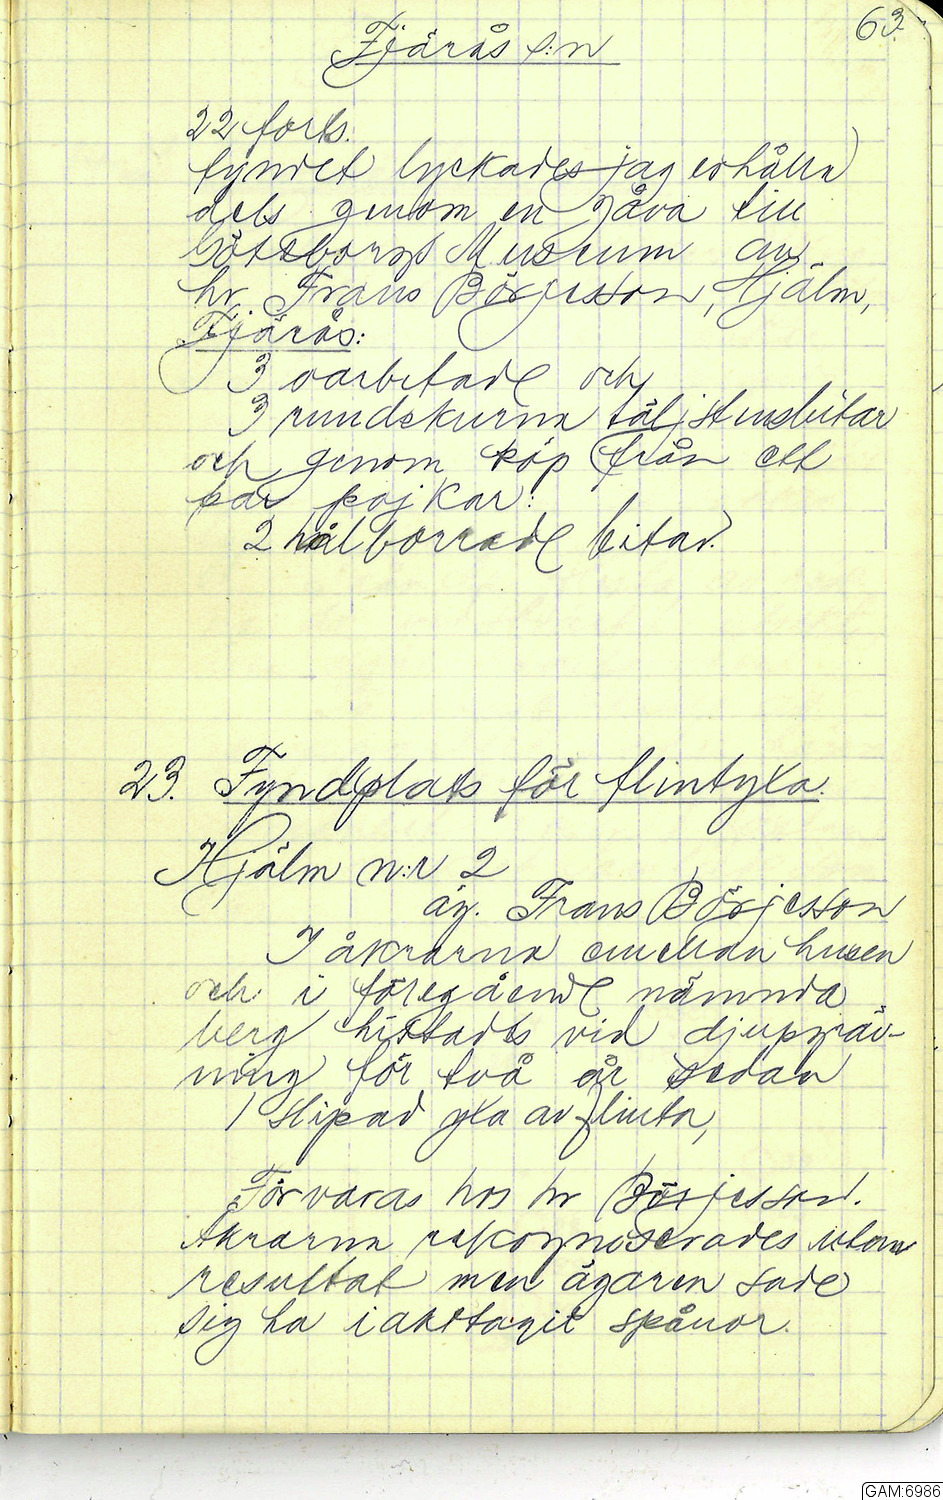 63.
Fjärås s:n
22 forts.
fyndet lyckades jag erhålla
dels genom en gåva till
Göteborgs Museum av
hr Frans Börjesson, Hjälm,
Fjärås:
3 oarbetade och
3 rundskurna täljstensbitar
och genom köp från ett
par pojkar:
2 hålborrade bitar.
23. Fyndplats för flintyxa.
Hjälm n:r 2
äg. Frans Börjesson
I åkrarna emellan husen
och i föregående nämnda
berg hittades vid djupgräv-
ning för två år sedan
1 slipad yxa av flinta,
Förvaras hos hr Börjesson.
Åkrarna rekognoserades utan
resultat men ägaren sade
sig ha iakttagit spånor.
GAM:6986